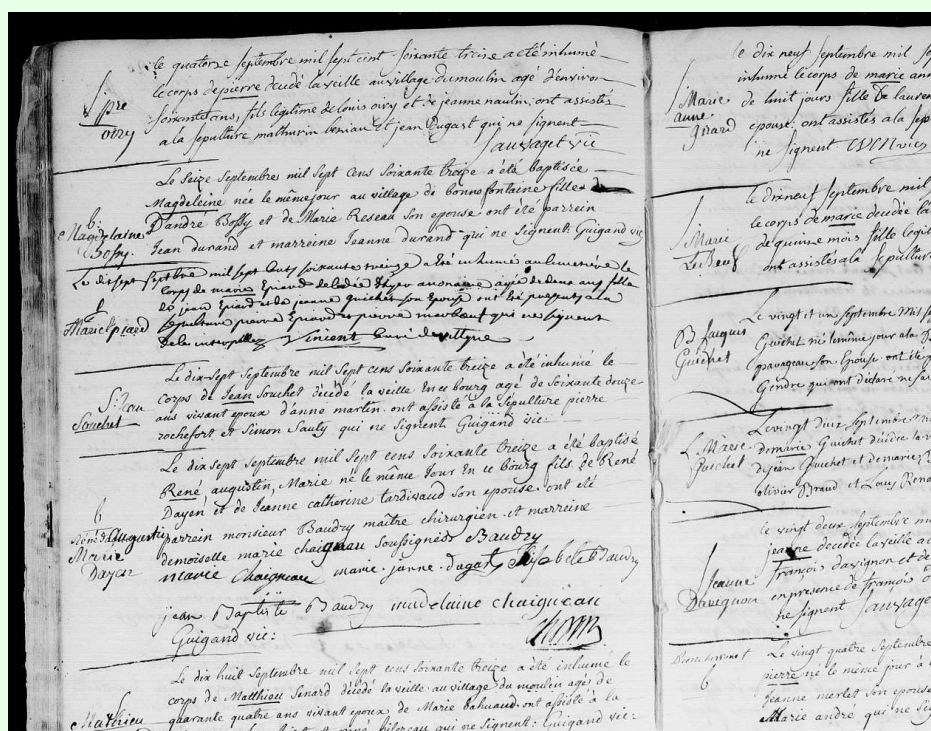 le quatorze septembre mil sept cent soixante treize a été inhumé
le corps de pierre decedé la veille au village du moulin agé d'environ
soixante ans, fils legitime de louis oiry et de jeanne naulin, ont assistés
a la sepulture mathurin et jean Dugast qui ne signent
Sauvaget vic
S. pre
oiry
Le Seize Septembre mil Sept Cens Soixante treize a été baptisée
Magdeleine nee le même jour au village de bonne fontaine fille
D'andré Bossy et de Marie Reseau son epouse ont été parrein
Jean durand et marreine Jeanne durand qui ne Signent: Guigand vic
b.
Magdelaine
Bossy.
Le dix sept septbre mil sept Cents soixante treize a été inhumé au cimetière le
Corps de marie Epiard agée de deux ans fille
de jean Epiard et de jeanne guichet son Epouse ont été presents a la
Sepulture pierre Epiard et pierre qui ne signent
de ce interpellez Vincent Curé de
Marie Epiard
Le dix-Sept Septembre mil Sept cens Soixante treize a été inhumé le
corps de Jean Souchet décédé la veille En ce bourg agé de Soixante douze
ans vivant epoux d'anne martin. ont assisté à la Sépulture pierre
rochefort et Simon Sauty qui ne Signent Guigand vic:
S. Jean
Souchet
Le dix Sept Septembre mil Sept cens Soixante treize a été baptisé
René, augustin, Marie né le même Jour En ce bourg fils de René
Dayen, et de Jeanne catherine tardivaud Son epouse. ont été
parrein monsieur Baudry maître chirurgien et marreine
demoiselle marie chaigneau Soussignés Baudry
marie Chaigneau marie. janne. dugast Elisabeth Baudry
jean Baptiste Baudry madelaine chaigneau
Guigand vic:
b
René Augustin
Marie
Dayen
Le dix huit Septembre mil Sept cens Soixante treize a été inhumé le
corps de Matthieu Senard décédé la veille au village du moulin agé de
quarante quatre ans vivant epoux de Marie bahuaud. ont assisté à la
qui ne Signent: Guigand vic:
Mathieu
le dix neuf septembre mil
inhumé le corps de marie ann
de huit jours fille de lauren
epouse. ont assistés a la sep
ne signent
S. Marie
anne
Girard
le dix neuf septembre mil
le corps de marie decedée la
de quinze mois fille legit
ont assistés a la sepulture
S. Marie
Le Beuf
Le vingt et un septembre Mil
Guichet né le même jour a la
son Epouse ont été p
Gendre qui ont déclaré ne sa
B Jacques
Guichet
Le vingt deux septembre m
de marie Guichet décédée la v
de jean Guichet et de marie
olivier Braud et Louis Rena
S. Marie
Guichet
le vingt deux septembre m
jeanne decedée la veille au
françois davignon et de
en presence de françois
ne signent Sauvage
S Jeanne
Davignon
Le vingt quatre Septembre
pierre né le même jour à
Jeanne merlet son epouse
Marie andré qui ne Sig